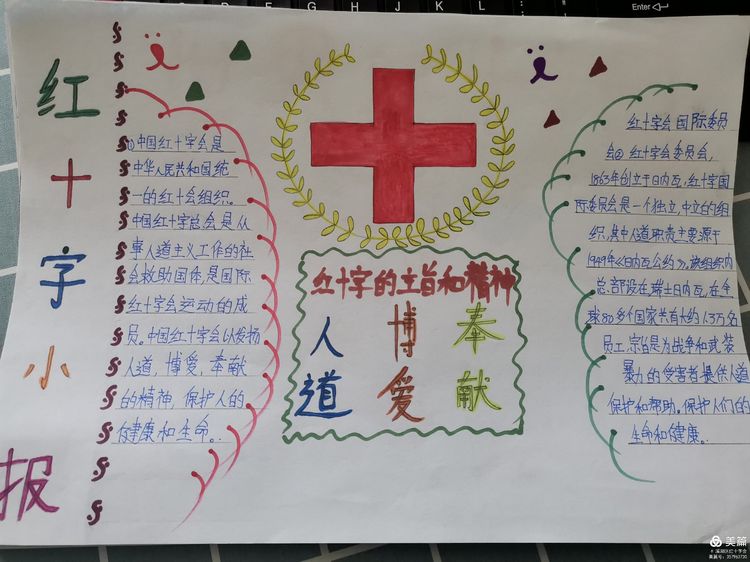 红
十
字
小
报
①中国红十字会是
中华人民共和国统
一的红十会组织。
中国红十字总会是从
事人道主义工作的社
会救助团体,是国际
红十字会运动的成
员,中国红十字会以发扬
人道,博爱,奉献
的精神,保护人的
健康和生命。
红十字的立旨和精神
人道
博爱
奉献
红十字会国际委员
会② 红十字会委员会,
1863年创立于日内瓦,红十字国
际委员会是一个独立,中立的组
织,其中人道职责主要源于
1949年《日内瓦公约》,该组织内
总部设在瑞士日内瓦,在全
球80多个国家共有大约1.3万名
员工,宗旨是为战争和武装
暴力的受害者提供人道
保护和帮助。保护人们的
生命和健康。
Enter
H
J
K
L
美篇